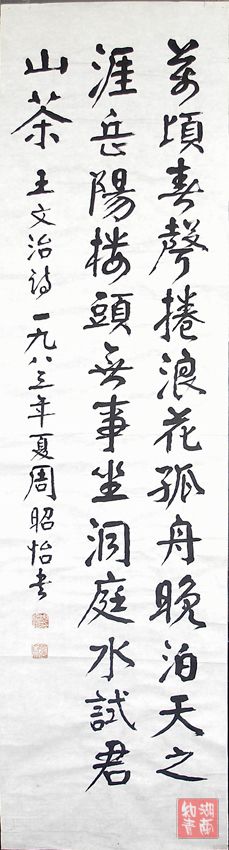 萬頃春聲捲浪花孤舟晚泊天之
涯岳陽楼頭無事坐洞庭水試君
山茶 王文治詩 一九八三年夏周昭怡书